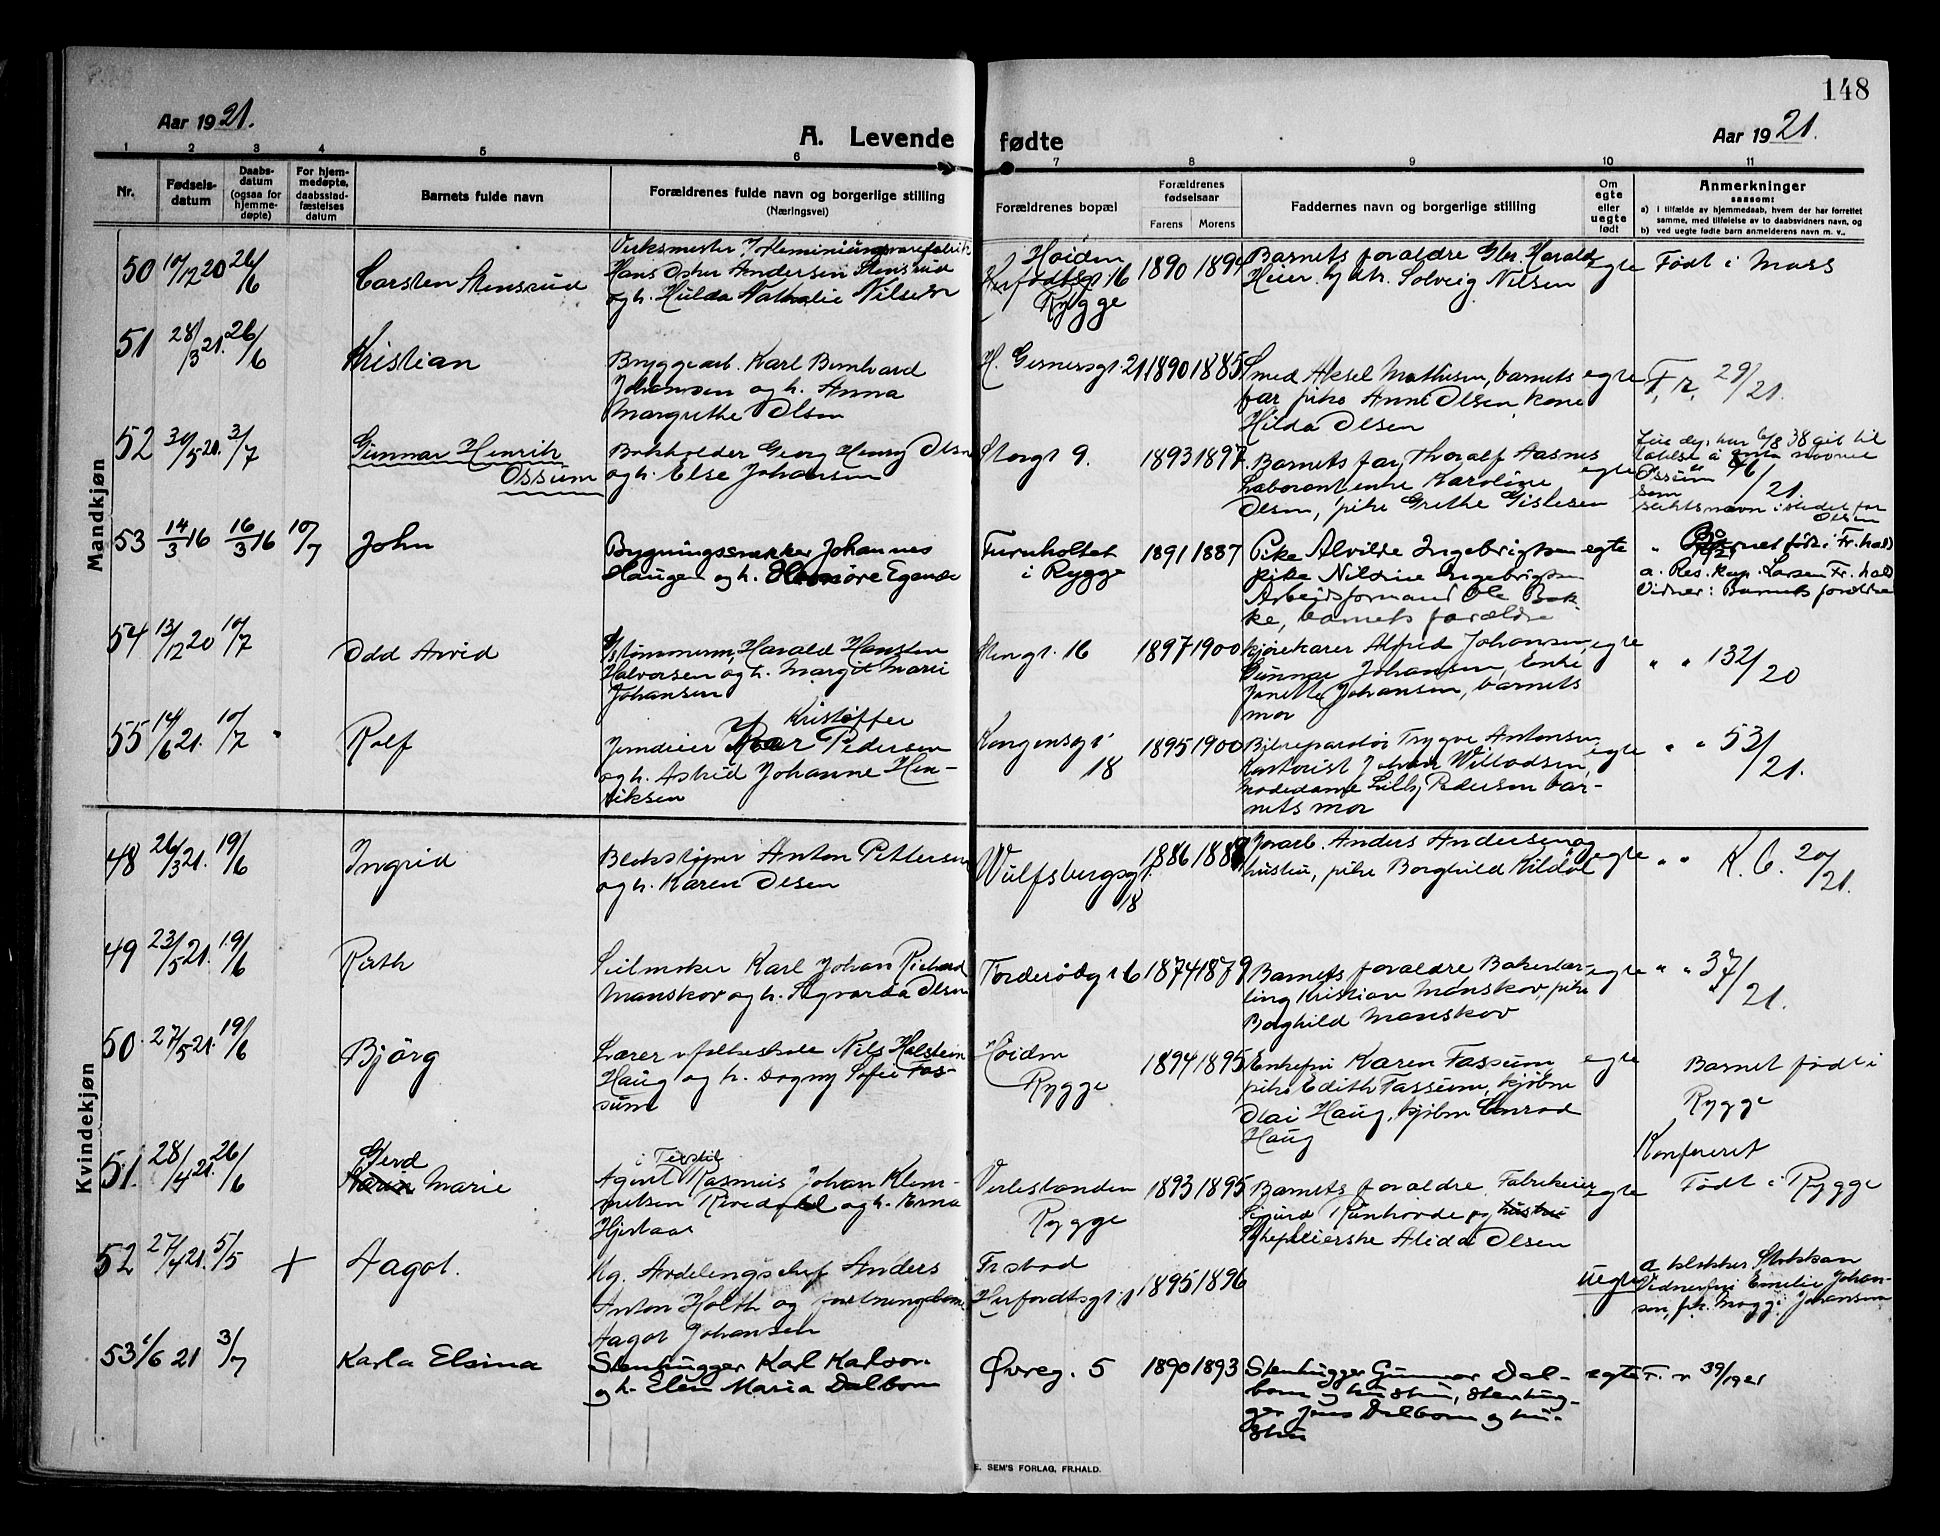 148
Aar 1921.
A. Levende fødte
Aar 1921.
1 2 3 4 5 6 7 8 9 10 11
Nr.
Fødsels-
datum
Daabs-
datum
(ogsaa for
hjemme-
døpte)
For hjem-
medøpte,
daabsstad-
fæstelses
datum
Barnets fulde navn
Forældrenes fulde navn og borgerlige stilling
(Næringsvei)
Forældrenes bopæl
Forældrenes
fødselsaar
Farens Morens
Faddernes navn og borgerlige stilling
Om
egte
eller
uegte
født
Anmerkninger
saasom:
a) i tilfælde av hjemmedaab, hvem der har forrettet
samme, med tilføielse av to daabsvidners navn, og
b) ved uegte fødte barn anmelderens navn m. v..
Mandkjøn
50 10/12 20 26/6
Carsten Stensrud
Verksmester
Hans Oskar Andersen Stensrud
og h. Hulda Nathalie Nilsen
Høiden
Herfodtsgt 16
Rygge
1890 1894
Barnets forældre Gbr. Harald
Heier Solveig Nilsen
egte
Født i Moss
51 28/3 21. 26/6
Kristian
Bryggearb. Karl Bernhard
Johansen og h. Anna
Margrethe Olsen
H. Gernersgt. 21.
1890 1885
Smed Aksel Mathisen, barnets
far, pike Anne Olsen, kone
Hilda Olsen
egte
F. r. 29/21.
52 30/5 21. 3/7
Gunnar Henrik
Ossum
Bokholder Georg Henry Olsen
og h. Else Johansen
Storgt 9.
1893 1897
Barnets far, Thoralf Aasnes
Laborant enke Karoline
Olsen, pike Grethe Gislesen
egte
har 6/8 38 git til
latelse å navnet
Ossum 46/21.
som
slektsnavn istedet for
Olsen
53 14/3 16 16/3 16 10/7
John
Bygningssnekker Johannes
Haugen og h. Egenæs
Furuholtet
i Rygge
1891 1887
Pike Alvilde Ingebrigtsen
pike Nildrine Ingebrigtsen
Arbeidsformand Ole Bak-
ke, barnets forældre
egte
" Barnet født i Fr.hald
a. Res. kap. Larsen Fr. hald
Vidner: Barnets forældre
54 13/12 20 10/7
Odd Arvid
Harald Hansten
Halvorsen og h. Margit Marie
Johansen
Stengt. 16
1897 1900
Kjørekarer Alfred Johansen,
Gunnar Johansen, Enke
Janette Johansen, barnets
mor
egte
" " 132/20
55 14/6 21. 10/7 "
Rolf
Kristoffer
Jerndreier Pedersen
og h. Astrid Johanne Hen-
riksen
Kongensgt
18
1895 1900
Bilreparatør Trygve Antonsen
Kontorist Johan Willadsen,
Modedame Lilly Pedersen bar-
nets mor
egte
" " 53/21.
Kvindekjøn
48 26/3 21. 19/6
Ingrid
Blekstøper Anton Pettersen
og h. Karen Olsen
Wulfsbergsgt.
18
1886 1888
Jorarb. Anders Andersen og
hustru, pike Borghild Kildal
egte
" " K. C. 20/21.
49 23/5 21. 19/6
Ruth
Seilmaker Karl Johan Richard
Manskov og h. Sigvarda Olsen
Torderødgt 6
1874 1879
Barnets forældre Bakerlær-
ling Kristian Manskov, pike
Borghild Manskov
egte
" " 37/21.
50. 27/5 21. 19/6
Bjørg
Lærer v folkeskole Nils Halstein
Haug og h. Dagny Sofie Fos-
sum
Høiden
Rygge
1894 1895
Enkefru Karen Fossum
pike Edith Fossum, kjøbm
Olai Haug, kjøbm Conrad
Haug
egte
Barnet født i
Rygge
Konfereret
51. 28/4 21. 26/6
Gerd
Marie
i Tekstil
Agent Rasmus Johan Klem-
metsen Rivedal og h. Erna
Hjertaas
Verlestranden
Rygge
1893 1895
Barnets forældre, Fabrikeier
Sigurd Runhovde og hustru
Alida Olsen
egte
Født i Rygge
52 27/4 21. 5/5 +
Aagot.
Kg. Avdelingschef Anders
Anton Holth og forretningsdame
Aagot Johansen
Fr.stad
Herfordtsgt 1
1895 1896
uegte
a klokker Stokkan
Vidner fru Emilie Johan-
sen, frk. Maggi Johansen
53 1/6 21 3/7
Karla Elsina
Stenhugger Karl Karlson
og h. Elen Maria Dalbom
Øvreg. 5
1890 1893
Stenhugger Gunnar Dal-
bom og hustru, stenhug-
ger Jens Dalbom og hu-
stru
egte
F. r 39/1921
E. SEM'S FORLAG, FR.HALD.